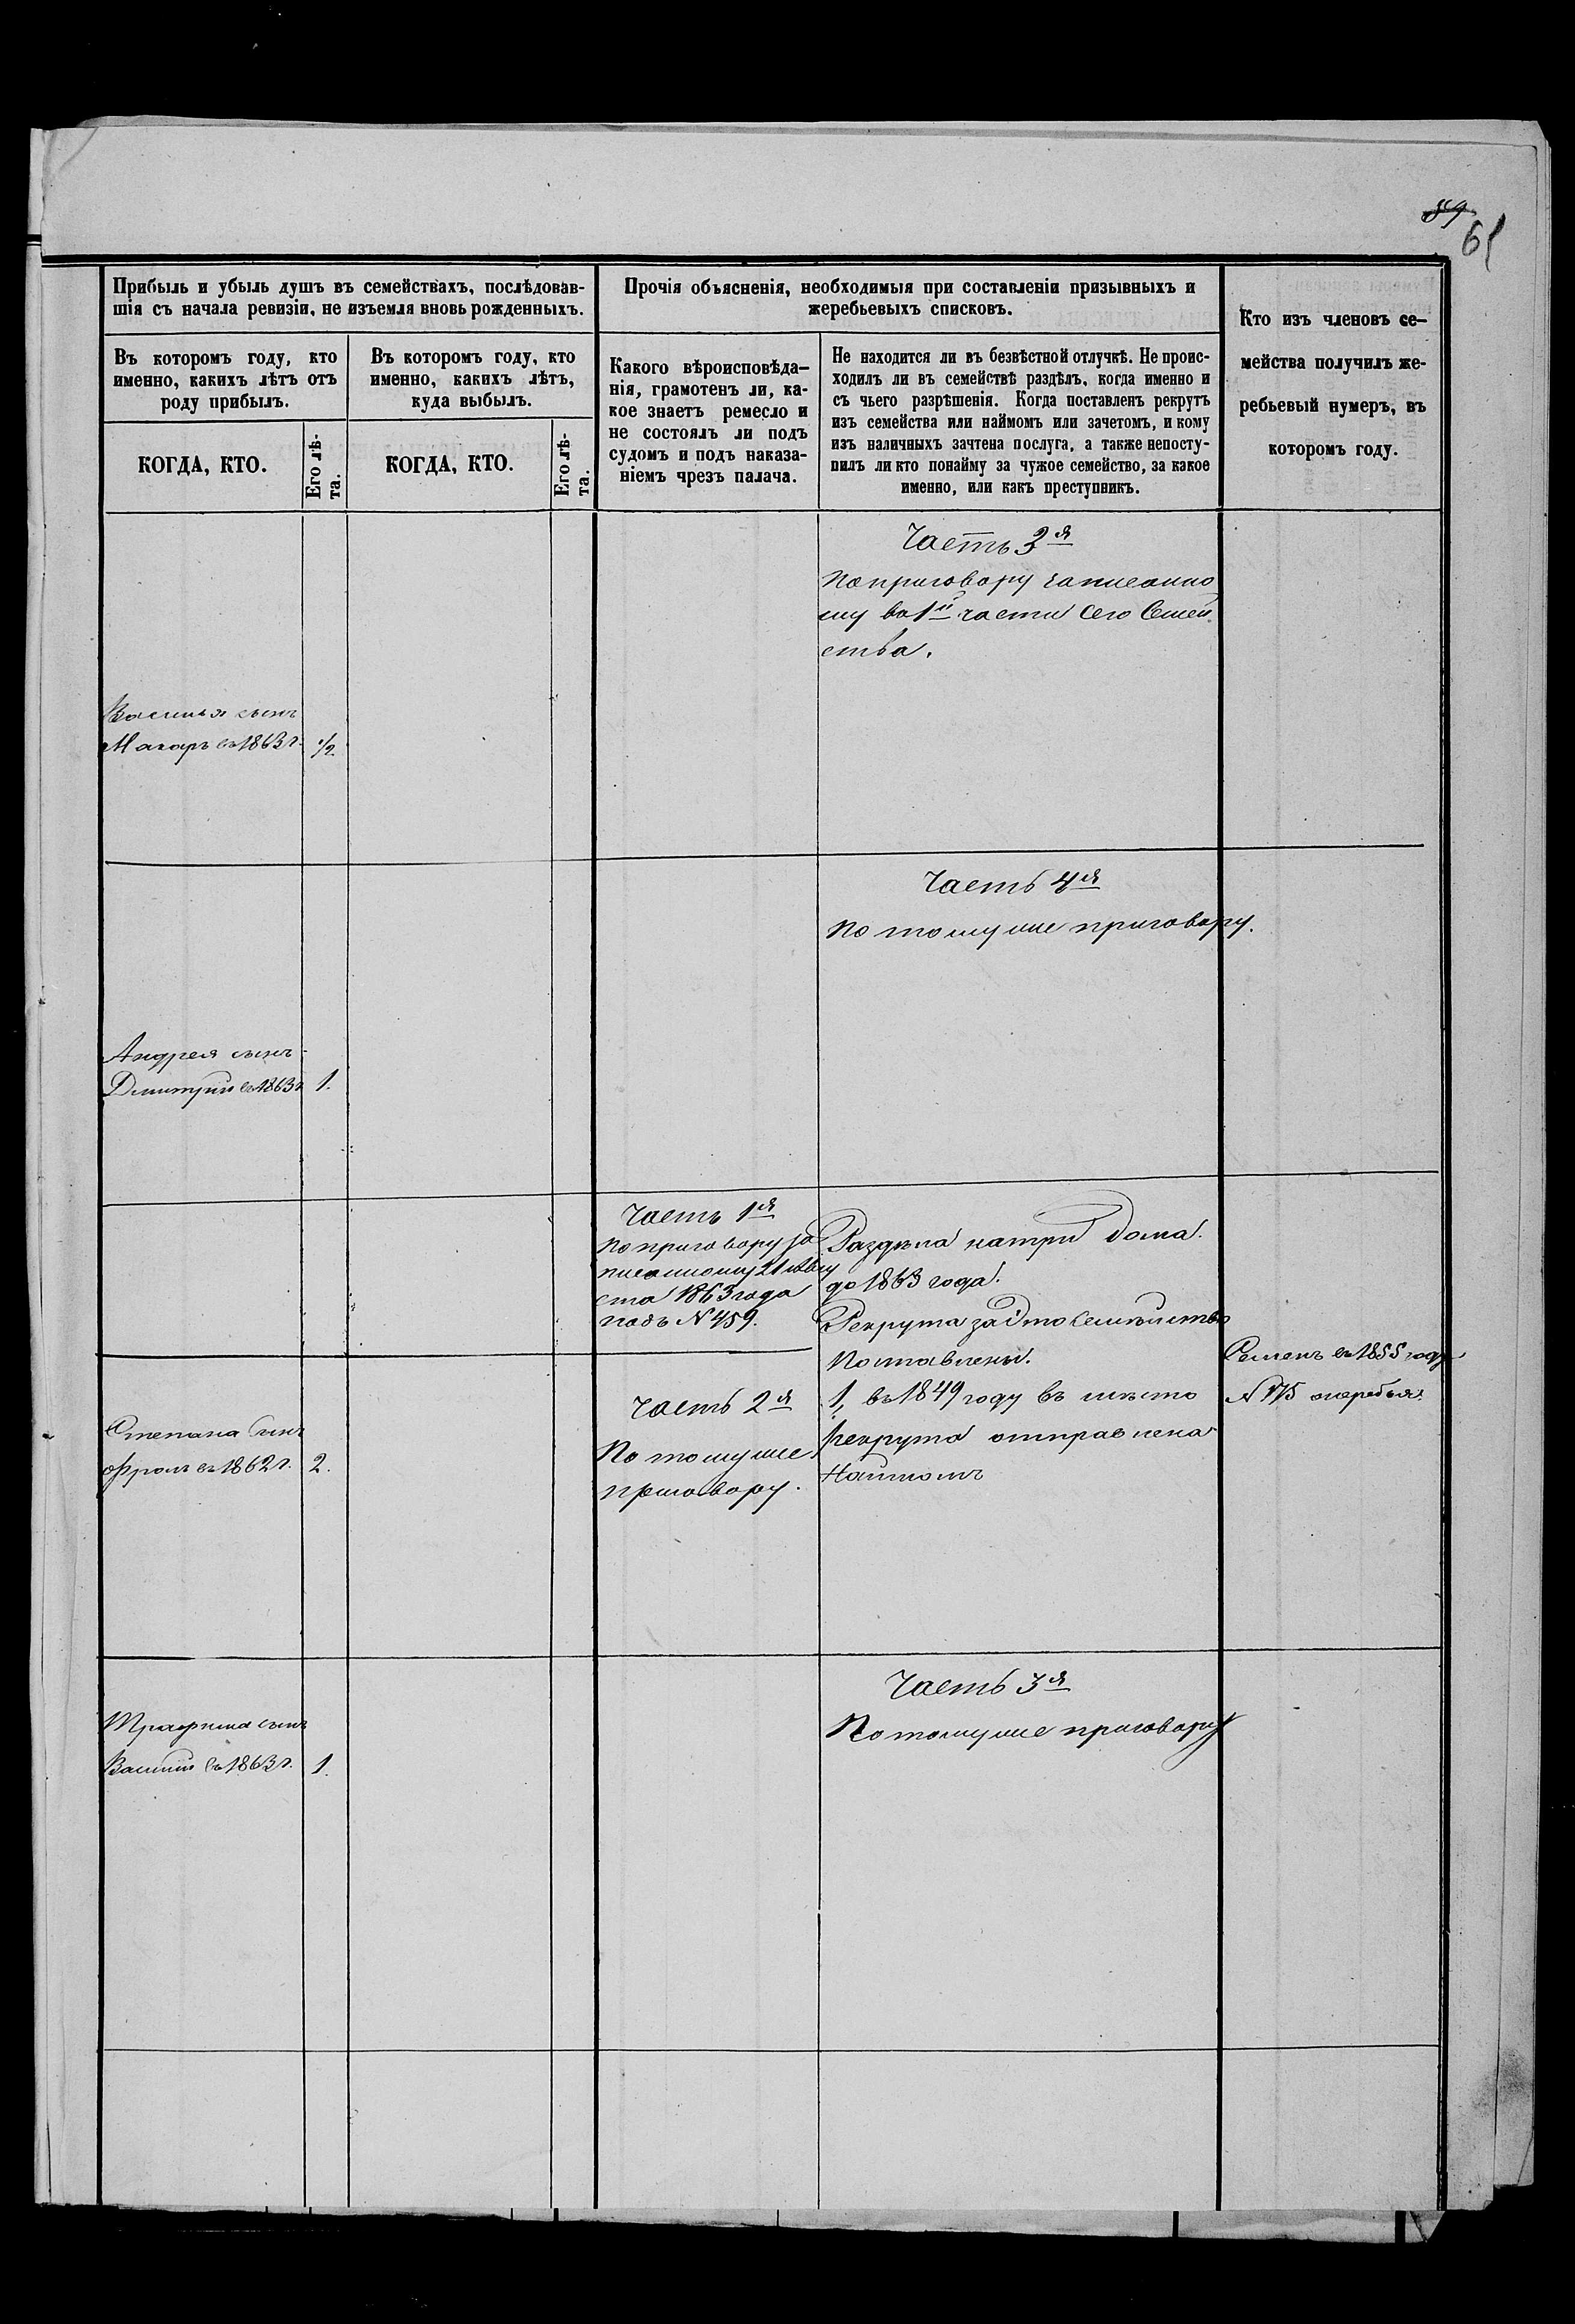 89
61
Прибыль и убыль душъ въ семействахъ, послѣдовав-
шія съ начала ревизіи, не изъемля вновь рожденныхъ.
Прочія объясненія, необходимыя при составленіи призывныхъ и
жеребьевыхъ списковъ.
Кто изъ членовъ се-
мейства получилъ же-
ребьевый нумеръ, въ
которомъ году.
Въ которомъ году, кто
именно, какихъ лѣтъ отъ
роду прибылъ.
Въ которомъ году, кто
именно, какихъ лѣтъ,
куда выбылъ.
Какого вѣроисповѣда-
нія, грамотенъ ли, ка-
кое знаетъ ремесло и
не состоялъ ли подъ
судомъ и подъ наказа-
ніемъ чрезъ палача.
Не находится ли въ безвѣстной отлучкѣ. Не проис-
ходилъ ли въ семействѣ раздѣлъ, когда именно и
съ чьего разрѣшенія. Когда поставленъ рекрутъ
изъ семейства или наймомъ или зачетомъ, и кому
изъ наличныхъ зачтена послуга, а также непосту-
пилъ ли кто понайму за чужое семейство, за какое
именно, или какъ преступникъ.
КОГДА, КТО.
Его лѣ-
та.
КОГДА, КТО.
Его лѣ-
та.
Часть 3я
По приговору записанно
му во 1й части сего Семей
ства.
Василья сынъ
Макаръ въ 1863 г. 1/2
Часть 4я
По тому же приговору.
Андрея сынъ
Дмитрій въ 1863 г 1.
Часть 1я
По приговору за
писанному 21 Авгу
ста 1863 года
подъ № 459.
Раздѣла на три дома
до 1863 года.
Рекрута за это Семѣйство
Поставлены.
1, въ 1849 году въ мѣсто
рекрута отправлена
Наймомъ
Семенъ въ 1855 году
№ 175 жеребья
Часть 2я
По тому же
приговору.
Степана Сынъ
Фролъ въ 1862 г. 2.
Часть 3я
По тому же приговору
Трафима сынъ
Василій въ 1863 г. 1.